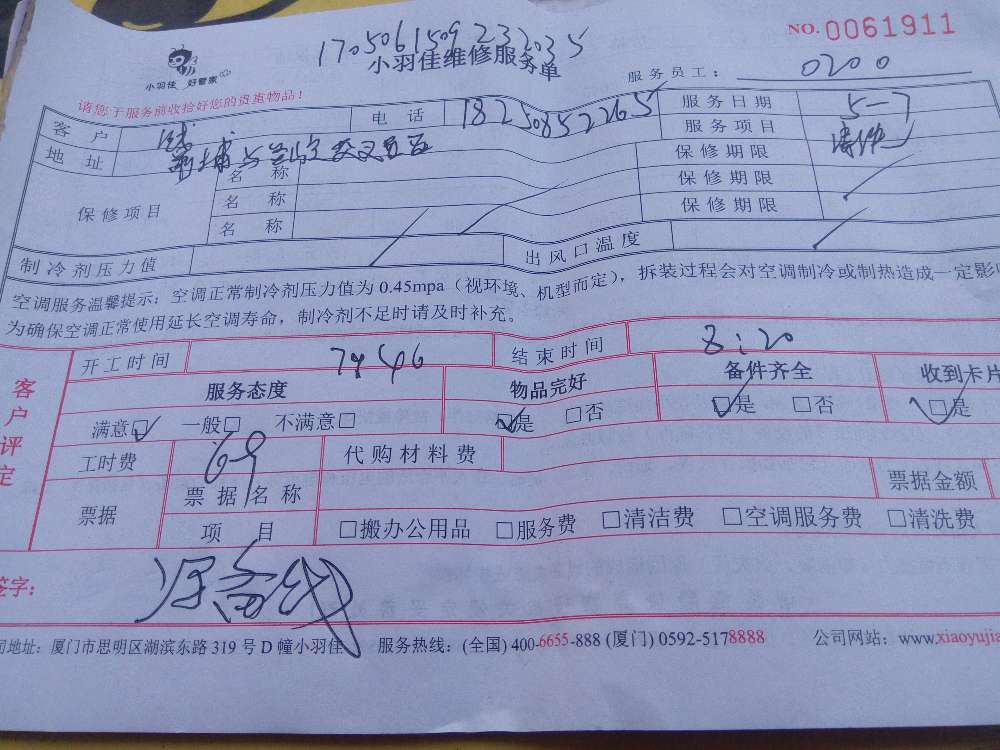 NO. 0061911
170506150923203 5
小羽佳维修服务单
小羽佳 好管家
服务员工： 0200
请您于服务前收拾好您的贵重物品！
客户 钱 电话 18250852265 服务日期 5-7
地址 服务项目
保修项目 名称 保修期限
名称 保修期限
名称 保修期限
制冷剂压力值 出风口温度
空调服务温馨提示：空调正常制冷剂压力值为 0.45mpa（视环境、机型而定），拆装过程会对空调制冷或制热造成一定影
为确保空调正常使用延长空调寿命，制冷剂不足时请及时补充。
开工时间 结束时间 8:20
客户评定
服务态度 物品完好 备件齐全 收到卡片
满意□ 一般□ 不满意□ □是 □否 □是 □否 □是
工时费 69 代购材料费
票据 票据名称 票据金额
项目 □搬办公用品 □服务费 □清洁费 □空调服务费 □清洗费
签字：
司地址：厦门市思明区湖滨东路 319 号 D 幢小羽佳 服务热线：(全国) 400-6655-888 (厦门) 0592-5178888 公司网站：www.xiaoyujia